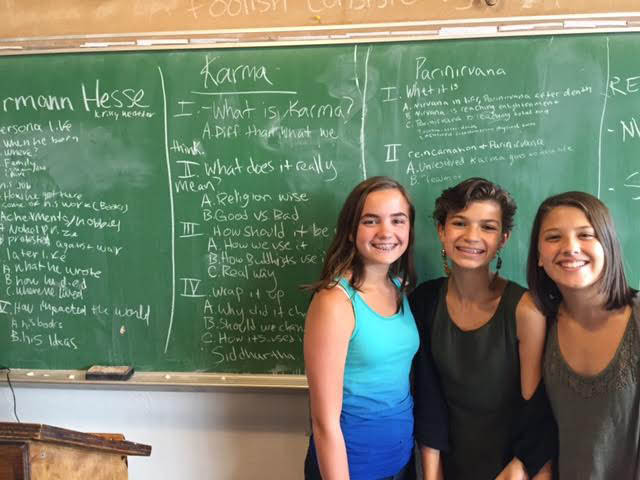 foolish consiste
rmann Hesse
ersona life
when he born
Where?
Family
his job
How he got here
some of his works (Books)
later life
A. what he wrote
B. how he died
C. where he lived
Had Impacted the world
A. his books
B. his Ideas
Karma
I - What is Karma?
A. Diff than what we
think.
II. What does it really
mean?
A. Religion wise
B. Good vs Bad
III. How should it be
A. How we use it
B. How Buddhists use i
C. Real way
IV. wrap it up
A. Why did it ch
B. Should we chan
C. How its used i
Siddhartha
Parinirvana
I. What it is
A. Nirvana in life, Parinirvana after death
B. Nirvana is reaching enlightenment
C. Parinirvana is reaching total end
II reincarnation & Parinirvana
A. Unresolved Karma goes to
RE